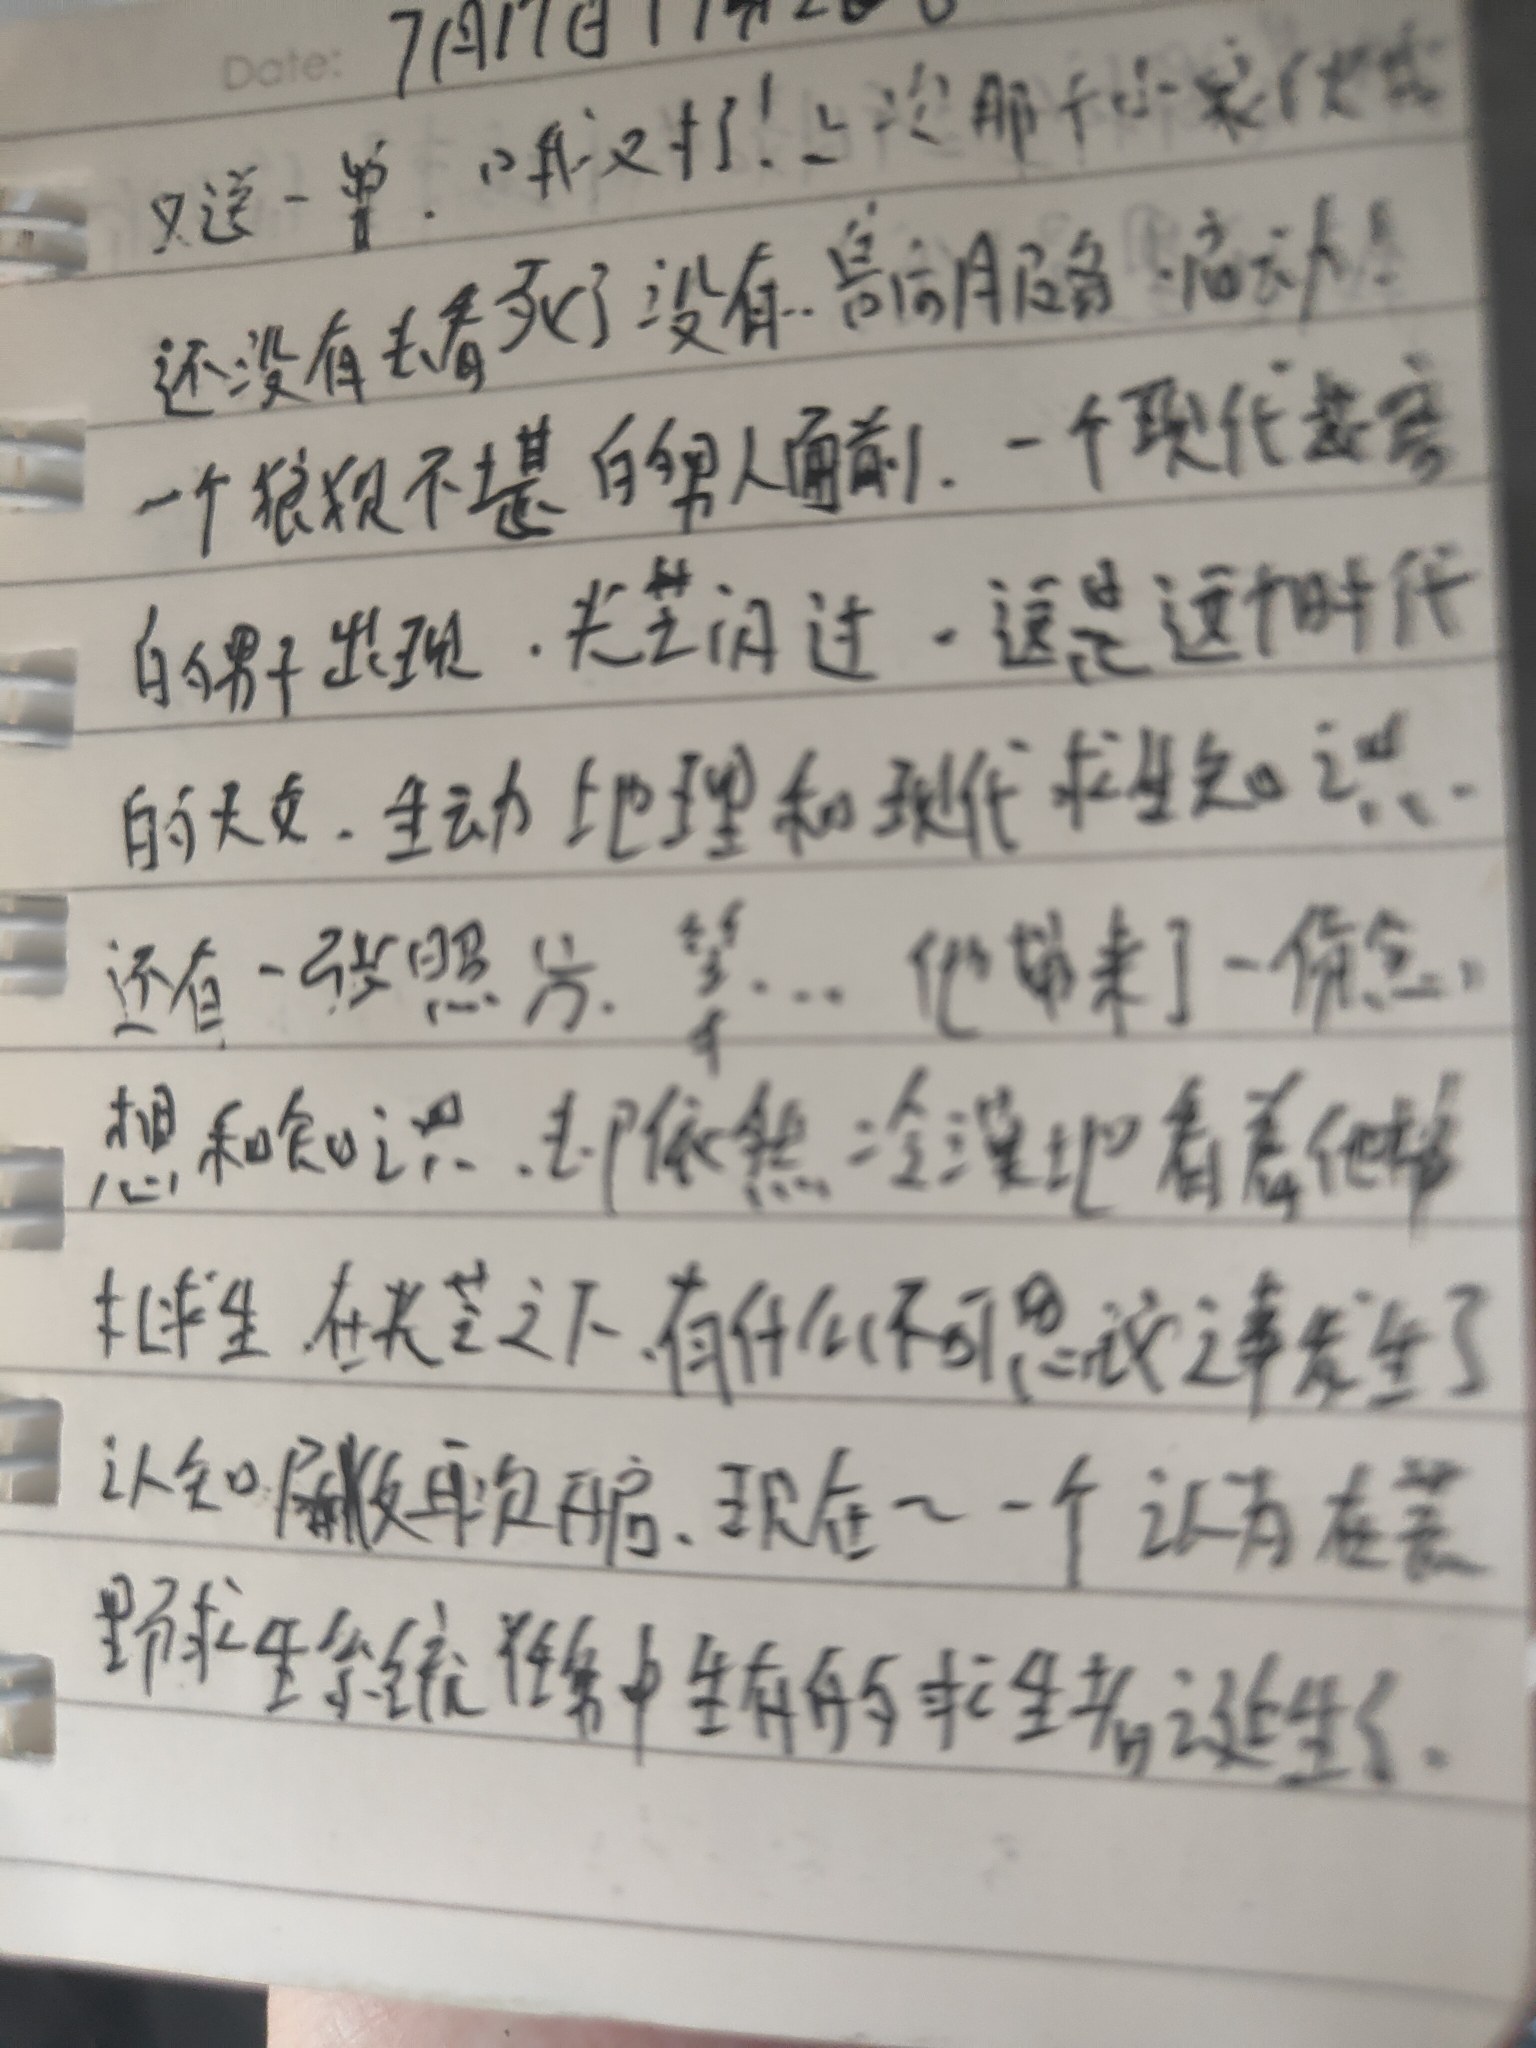 Date: 7月17日
只送一单.哦又村了!上次那个小家伙
还没有去看死了没有..售后服务.启动!
一个狼狈不堪的男人面前.一个现代装
的男子出现.光芒闪过.这是这个时代
的天文.生动地理和现代求生知识.
还有一张照片.等...他带来了一份
想和知识.却依然冷漠地看着他
扎求生.在光芒之下.有什么不可思议之事发生了
认知再次开启、现在~一个认为在荒
野求生系统任务中生存的求生者诞生了.